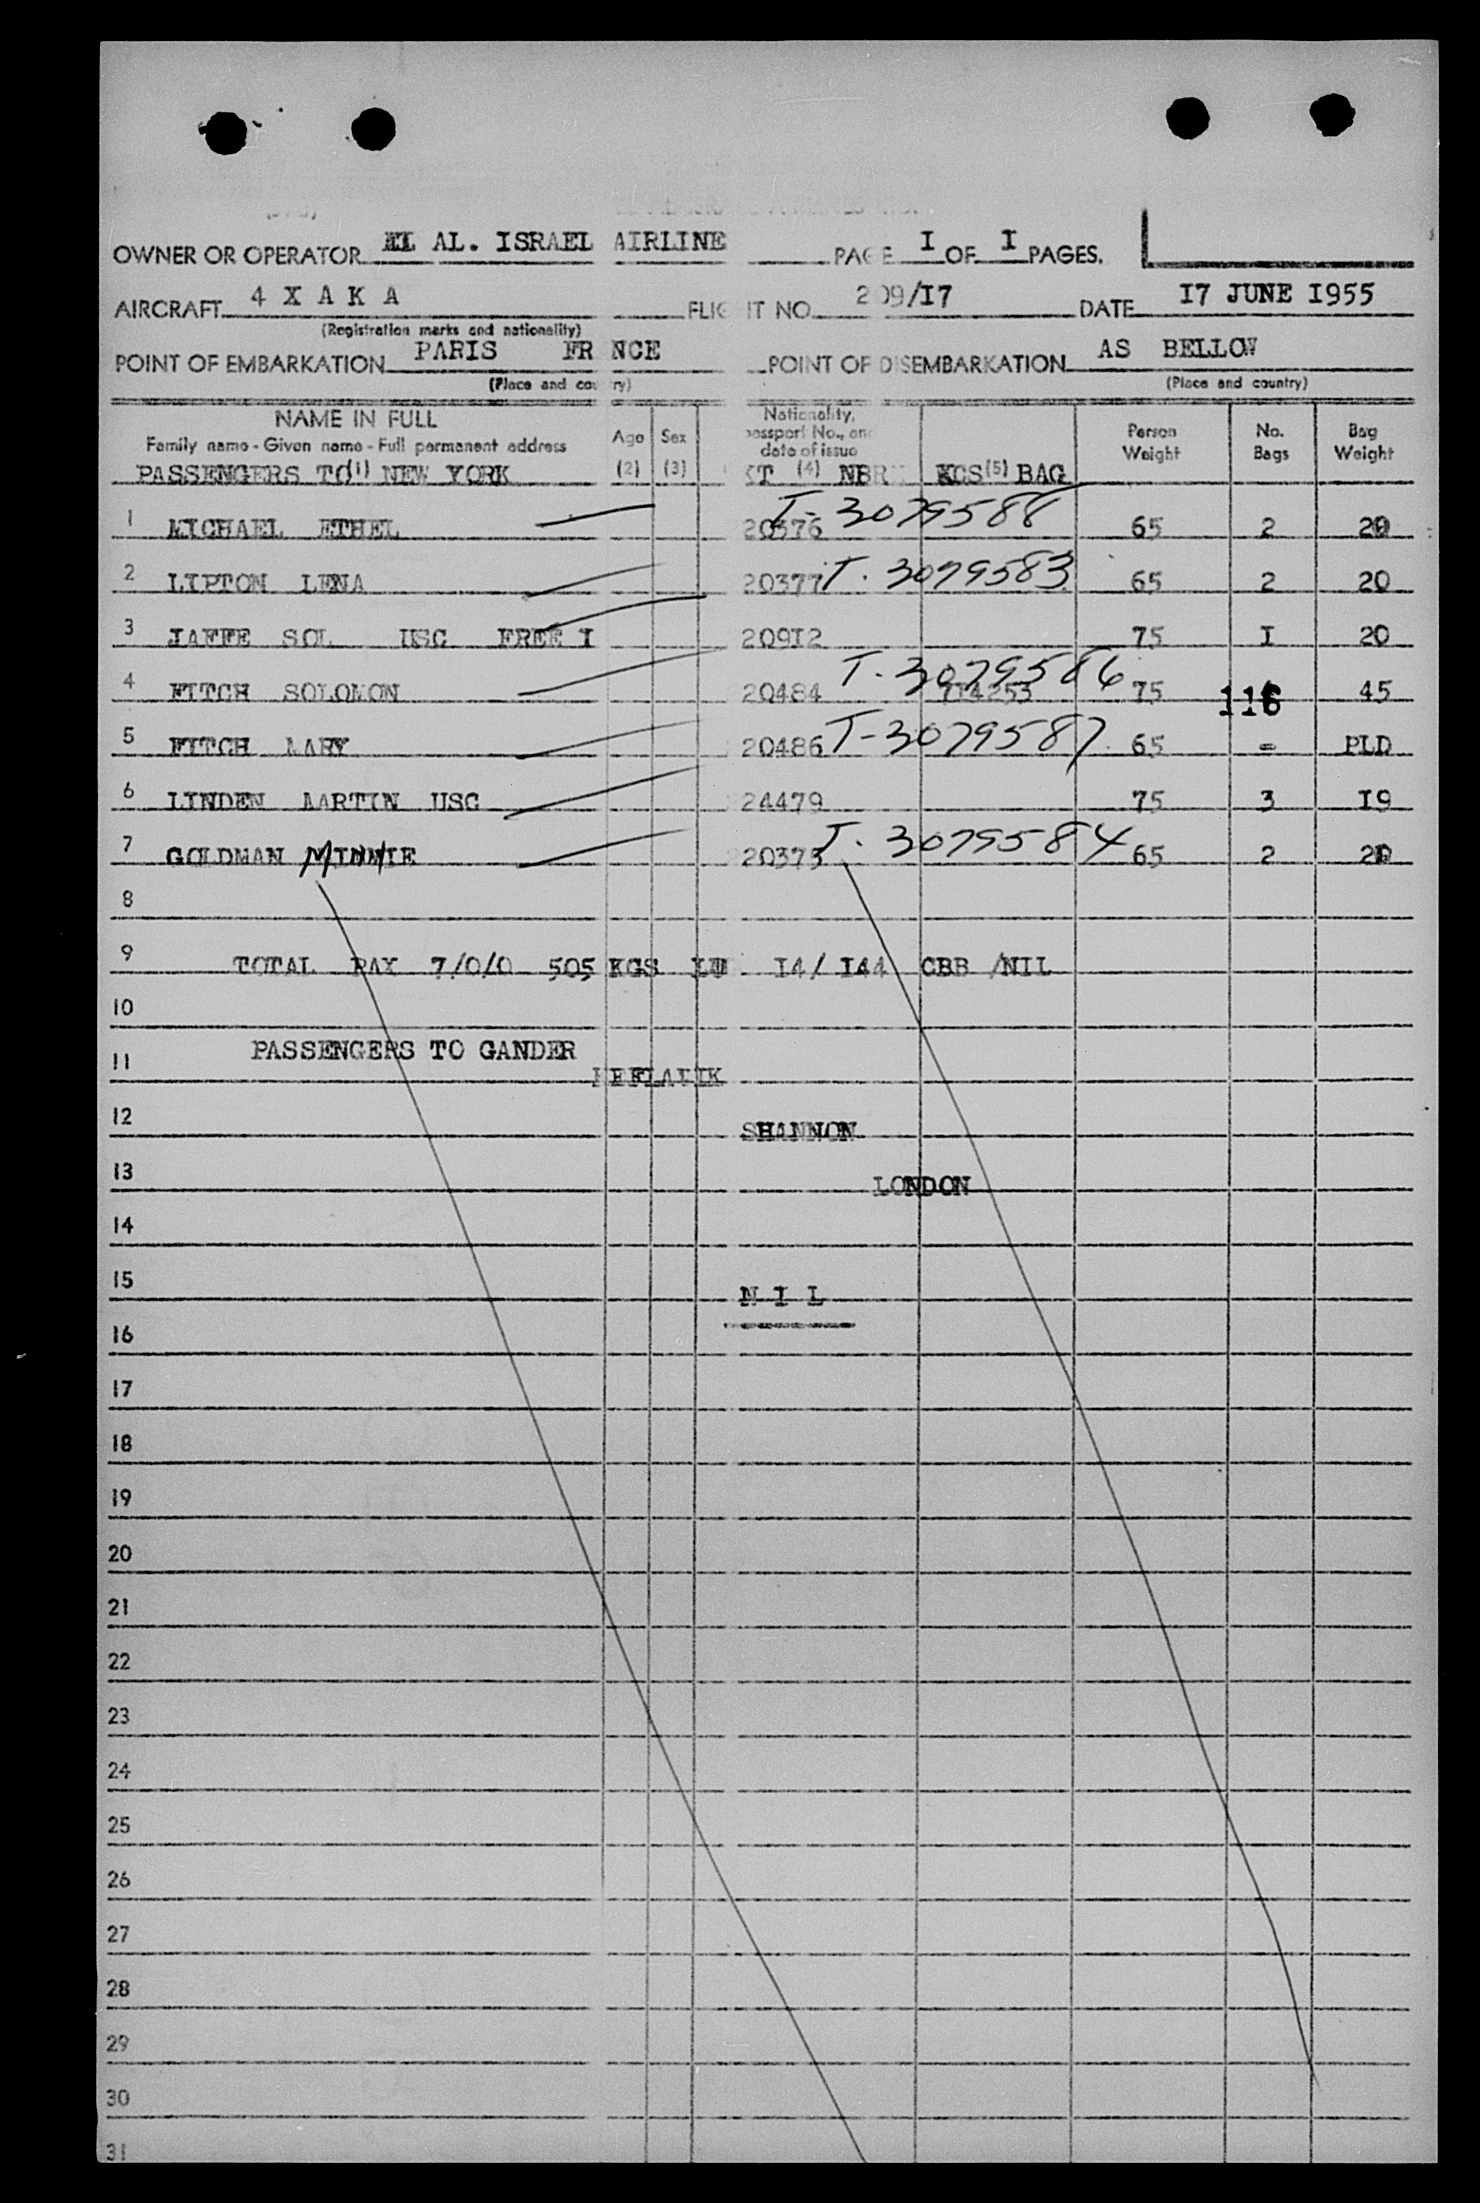 OWNER OR OPERATOR EL AL. ISRAEL AIRLINE PAGE I OF I PAGES.
AIRCRAFT 4 X A K A FLIGHT NO. 209/I7 DATE I7 JUNE I955
(Registration marks and nationality)
POINT OF EMBARKATION PARIS FR NCE POINT OF DISEMBARKATION AS BELLOW
(Place and country) (Place and country)
NAME IN FULL Nationality,
Family name - Given name - Full permanent address Age Sex passport No., and Person No. Bag
date of issue Weight Bags Weight
PASSENGERS TO (1) NEW YORK (2) (3) KT (4) NBR KGS (5) BAG
1 MICHAEL ETHEL 20376 T-3079588 65 2 20
2 LIPTON LENA 20377 T. 3079583 65 2 20
3 JAFFE SOL USC FREE I 20912 75 I 20
4 FITCH SOLOMON 20484 T. 3079586 714253 75 116 45
5 FITCH MARY 20486 T-3079587 65 = PLD
6 LINDEN MARTIN USC 24479 75 3 I9
7 GOLDMAN MINNIE 20373 T. 3079584 65 2 20
8
9 TOTAL PAX 7/0/0 505 KGS I4/ I44 CBB /NIL
10
PASSENGERS TO GANDER
11 KEFLAVIK
12 SHANNON
13 LONDON
14
15 N I L
16
17
18
19
20
21
22
23
24
25
26
27
28
29
30
31